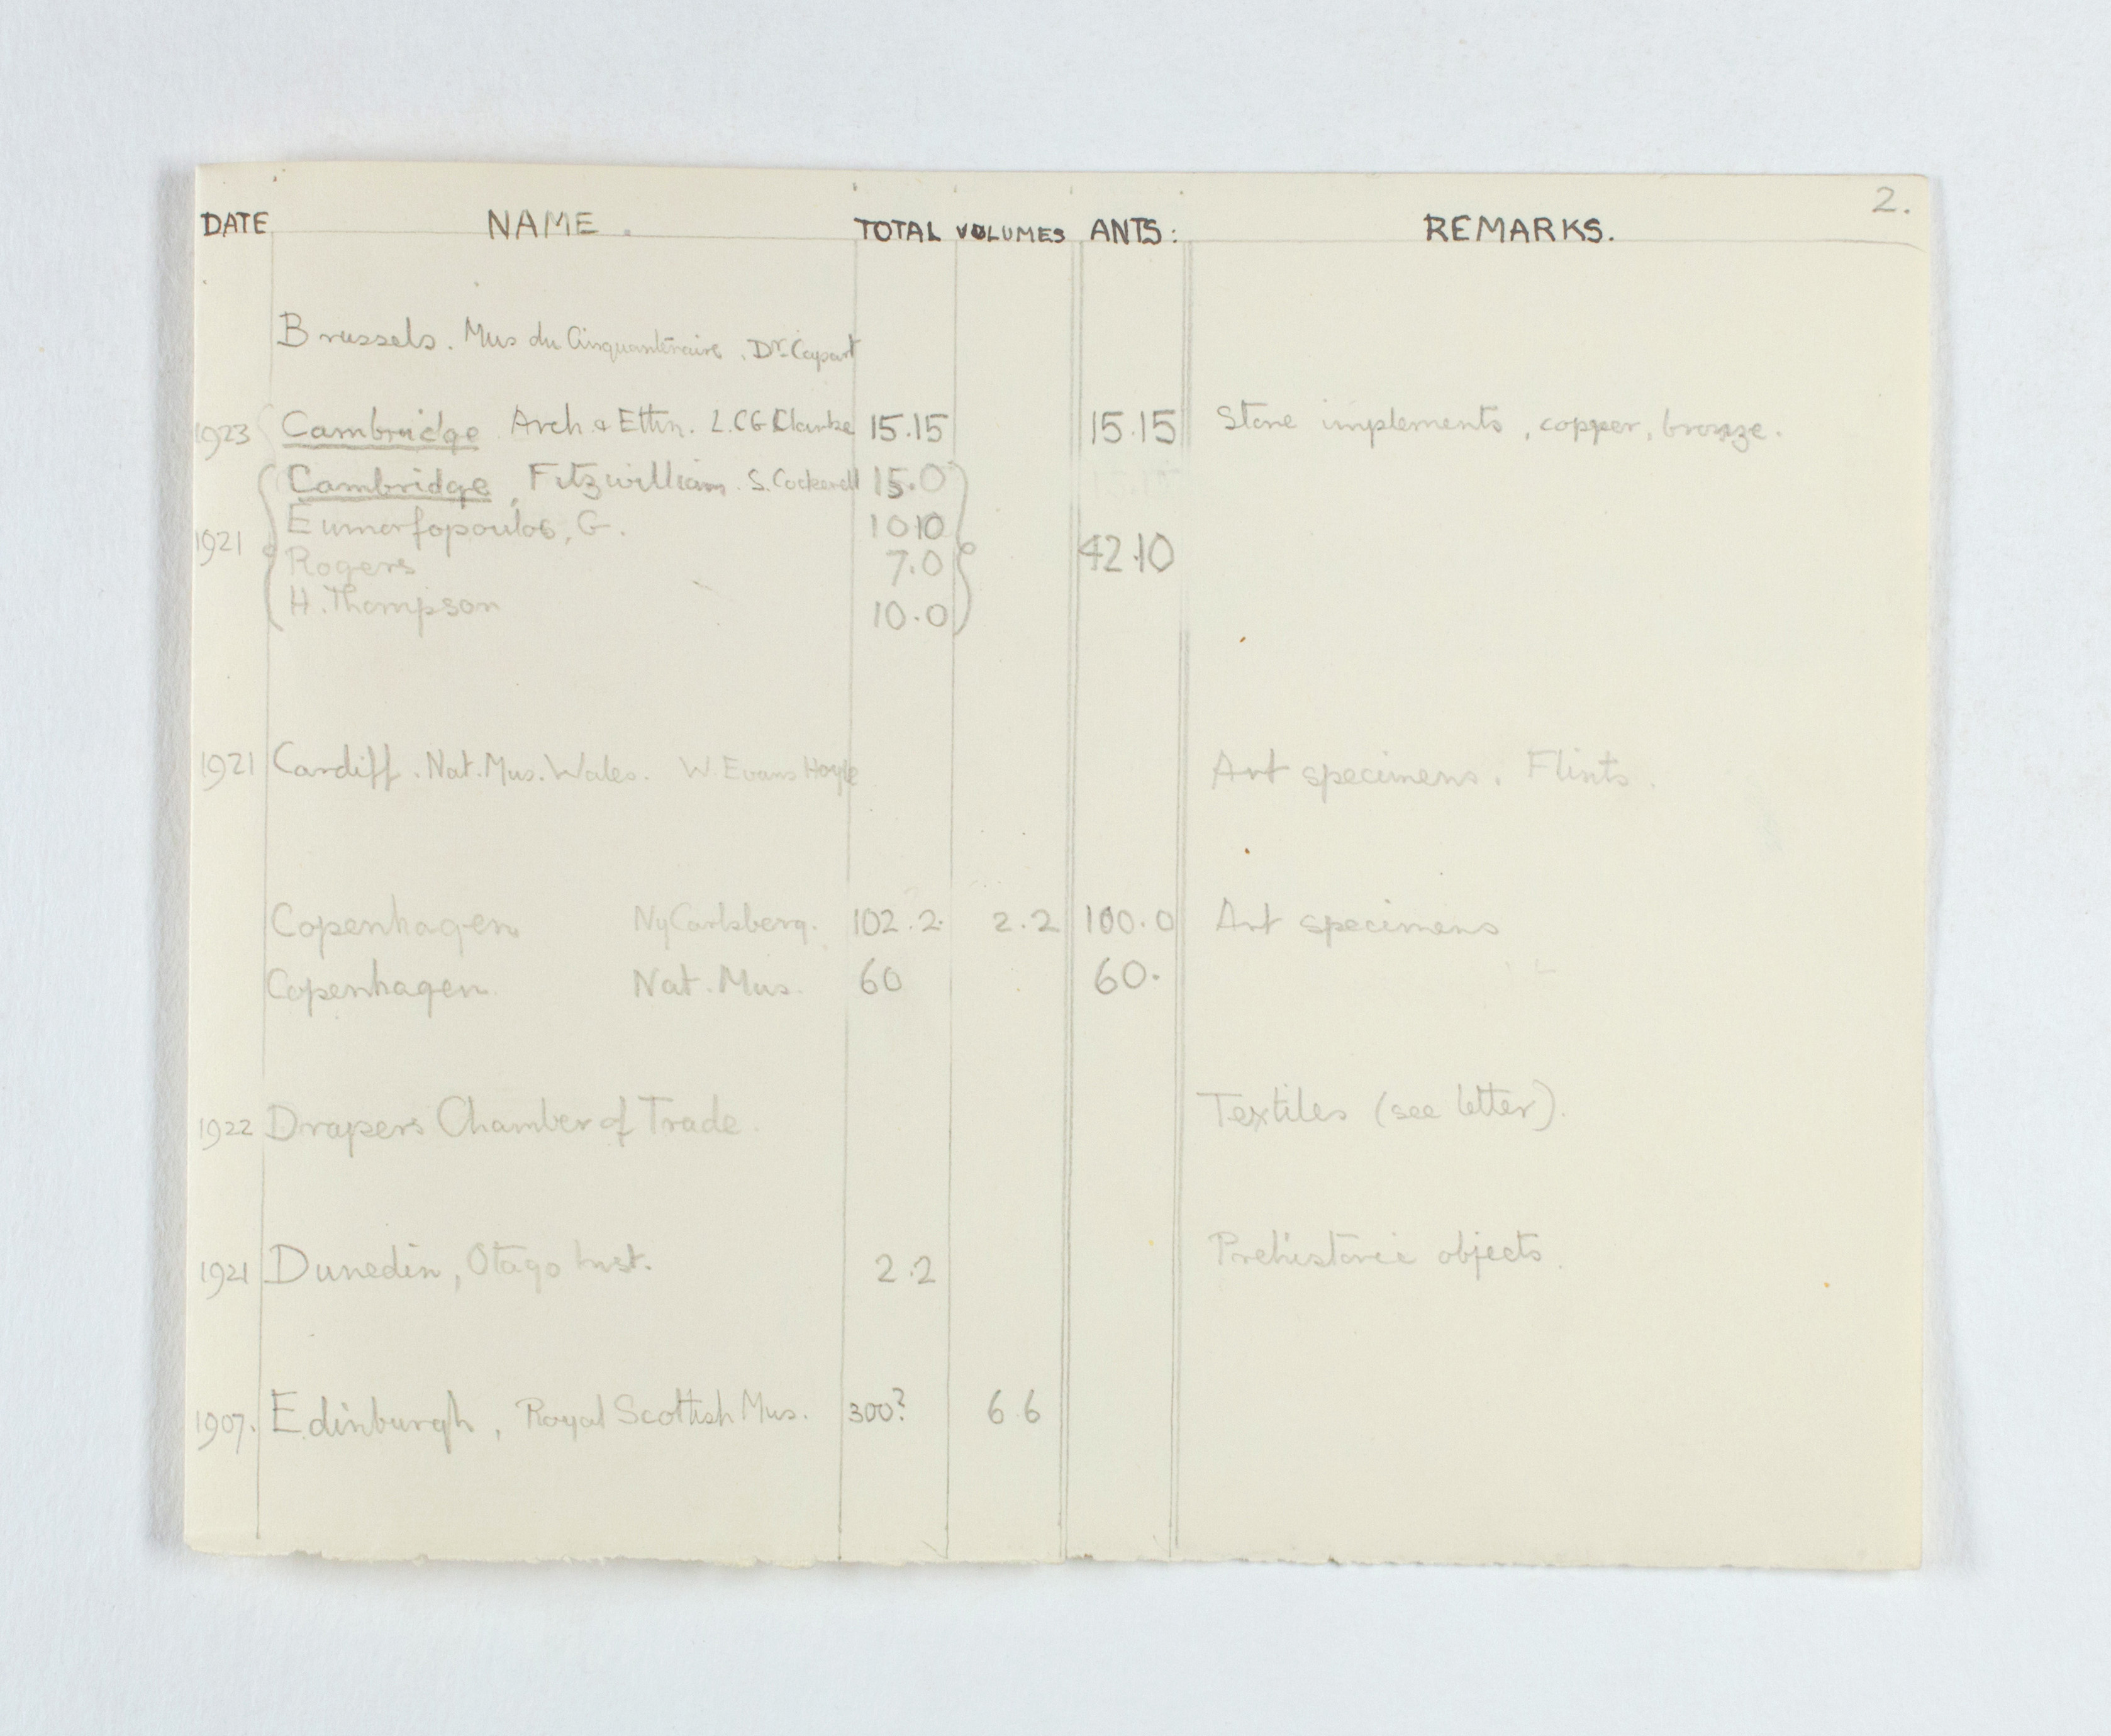 2.
DATE NAME. TOTAL VOLUMES ANTS: REMARKS.
Brussels. Mus du Cinquantenaire. Dr. Capart
1923 Cambridge Arch. & Ethn. L.C.G Clarke 15.15 15.15 Stone implements, copper, bronze.
Cambridge, Fitzwilliam. S. Cockerell 15.0
Eumorfopoulos, G. 10 10
1921 42.10
Rogers 7.0
H. Thompson 10.0
1921 Cardiff. Nat. Mus. Wales. W. Evans Hoyle Art specimens. Flints.
Copenhagen NyCarlsberg. 102.2. 2.2 100.0 Art specimens
Copenhagen. Nat. Mus. 60 60.
1922 Drapers Chamber of Trade. Textiles (see letter).
1921 Dunedin, Otago Inst. 2.2 Prehistoric objects.
1907. Edinburgh, Royal Scottish Mus. 300? 6 6